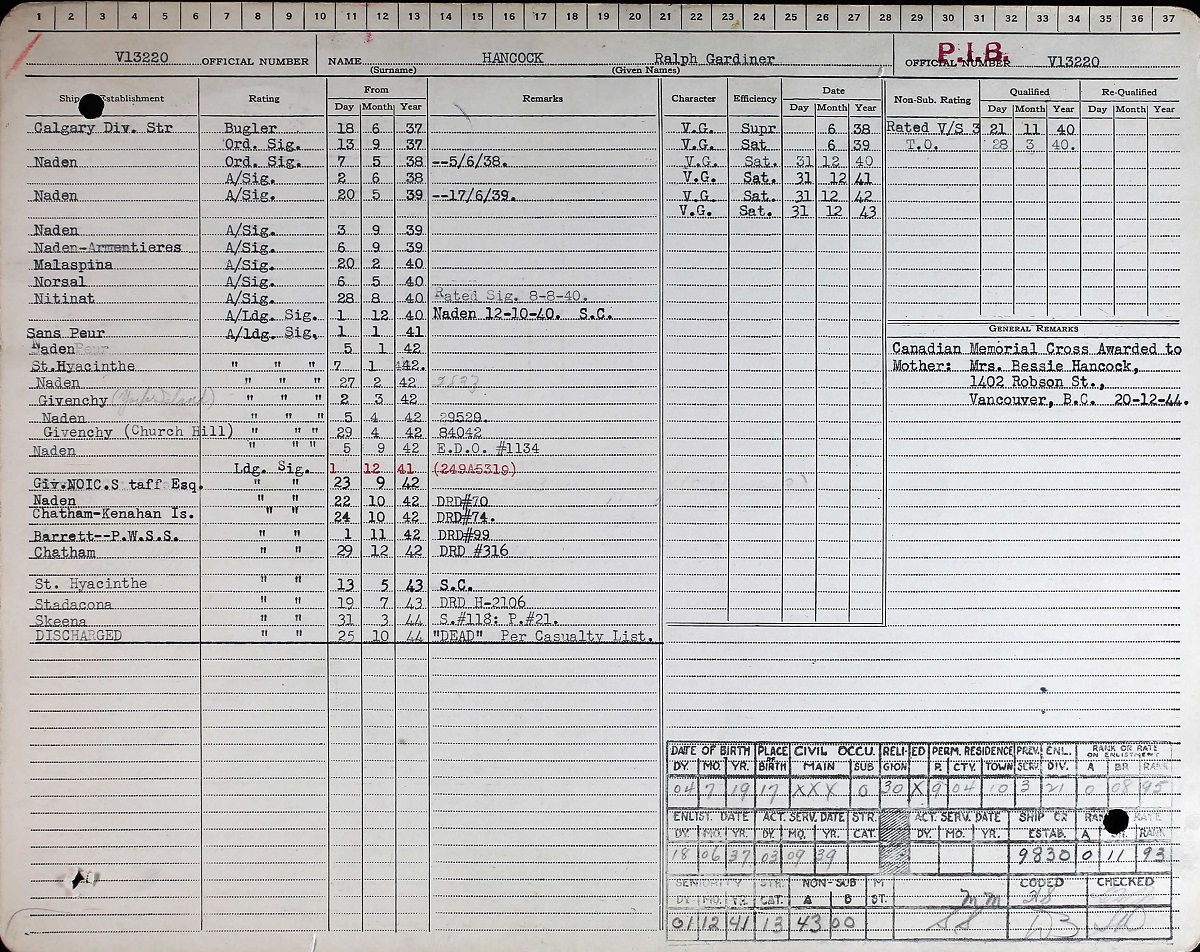 1 2 3 4 5 6 7 8 9 10 11 12 13 14 15 16 17 18 19 20 21 22 23 24 25 26 27 28 29 30 31 32 33 34 35 36 37
V13220 OFFICIAL NUMBER NAME HANCOCK Ralph Gardiner P.I.B. OFFICIAL NUMBER V13220
(Surname) (Given Names)
Ship Establishment Rating From Remarks Character Efficiency Date Non-Sub. Rating Qualified Re-Qualified
Day Month Year Day Month Year Day Month Year Day Month Year
Calgary Div. Str Bugler 18 6 37 V.G. Supr 6 38 Rated V/S 3 21 11 40
Ord. Sig. 13 9 37 V.G. Sat 6 39 T.O. 28 3 40.
Naden Ord. Sig. 7 5 38 --5/6/38. V.G. Sat. 31 12 40
A/Sig. 2 6 38 V.G. Sat. 31 12 41
Naden A/Sig. 20 5 39 --17/6/39. V.G. Sat. 31 12 42
V.G. Sat. 31 12 43
Naden A/Sig. 3 9 39
Naden-Armentieres A/Sig. 6 9 39
Malaspina A/Sig. 20 2 40
Norsal A/Sig. 6 5 40
Nitinat A/Sig. 28 8 40 Rated Sig. 8-8-40.
A/Ldg. Sig. 1 12 40 Naden 12-10-40. S.C.
Sans Peur A/ldg. Sig. 1 1 41
Naden 5 1 42
St.Hyacinthe " " " 7 1 42.
Naden " " " 27 2 42
Givenchy " " " 2 3 42
Naden " " " 5 4 42 29529
Givenchy (Church Hill) " " " 29 4 42 84042
Naden " " " 5 9 42 E.D.O. #1134
Ldg. Sig. 1 12 41 (249A5319)
Giv.NOIC.S taff Esq. " " 23 9 42
Naden " " 22 10 42 DRD#70
Chatham-Kenahan Is. " " 24 10 42 DRD#74.
Barrett--P.W.S.S. " " 1 11 42 DRD#99
Chatham " " 29 12 42 DRD #316
St. Hyacinthe " " 13 5 43 S.C.
Stadacona " " 19 7 43 DRD H-2106
Skeena " " 31 3 44 S.#118: P.#21.
DISCHARGED " " 25 10 44 "DEAD" Per Casualty List.
GENERAL REMARKS
Canadian Memorial Cross Awarded to
Mother: Mrs. Bessie Hancock,
1402 Robson St.,
Vancouver, B.C. 20-12-44.
DATE OF BIRTH PLACE OF BIRTH CIVIL OCCU. RELIGION ED PERM. RESIDENCE PREV. SERV. ENL. DIV. RANK OR RATE ON ENLISTMENT
DY. MO. YR. MAIN SUB P. CTY. TOWN A BR RANK
04 7 19 17 XXX 0 30 X 9 04 10 3 21 0 08 95
ENLIST. DATE ACT. SERV. DATE STR. CAT. ACT. SERV. DATE SHIP OR ESTAB. RATE
DY. MO. YR. DY. MO. YR. DY. MO. YR. A RANK
18 06 37 03 09 39 9830 0 11 93
SENIORITY STR. CAT. NON-SUB M ST. CODED CHECKED
DY. MO. YR. A B
01 12 41 13 43 00